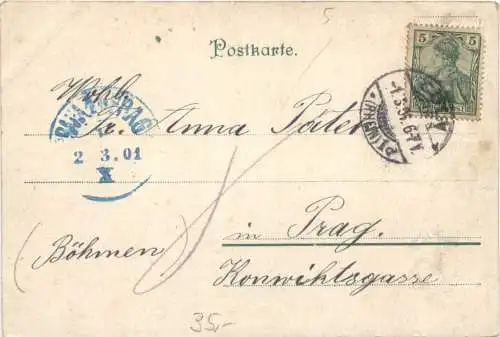 5
Postkarte.
5
Wohlb.
Fr. Anna Pater
PRAG
2 3.01
X
in Prag.
(Böhmen)
Konwihtsgasse
35,-